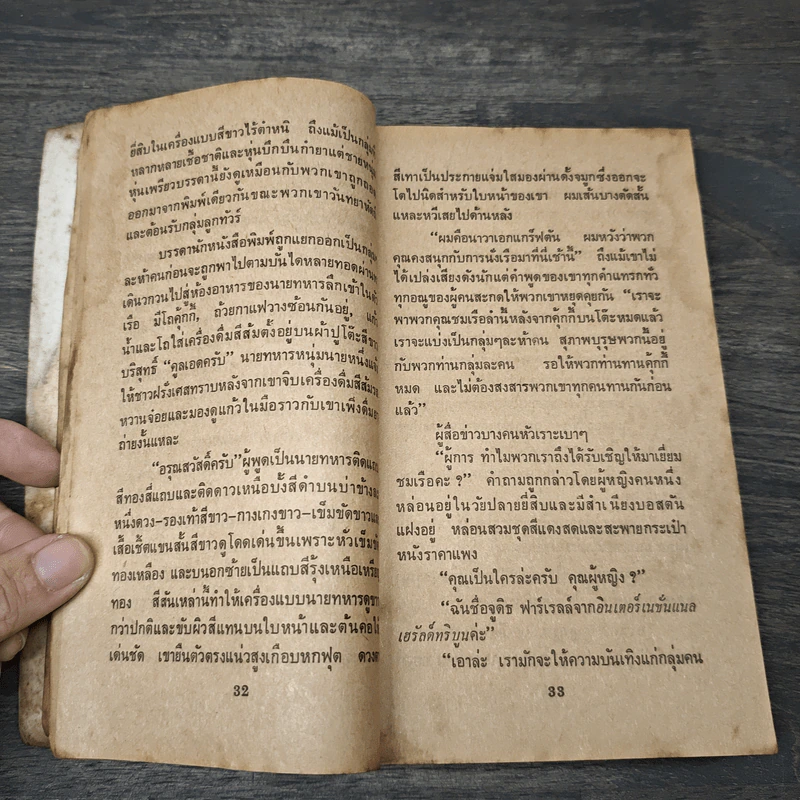 ยี่สิบในเครื่องแบบสีขาวไร้ตำหนิ ถึงแม้เป็นกลุ่ม
หลากหลายเชื้อชาติและหุ่นบึกบึนกำยำแต่ชาย
หุ่นเพรียวบรรดานี้ยังดูเหมือนกับพวกเขาถูก
ออกมาจากพิมพ์เดียวกันขณะพวกเขาวันทยาหัตถ์
และต้อนรับกลุ่มลูกทัวร์
บรรดานักหนังสือพิมพ์ถูกแยกออกเป็นกลุ่ม
ละห้าคนก่อนจะถูกพาไปตามบันไดหลายทอดผ่าน
เดินวกวนไปสู่ห้องอาหารของนายทหารลึกเข้าใน
เรือ มีโถคุ้กกี้, ถ้วยกาแฟวางซ้อนกันอยู่, แก้ว
น้ำและโถใส่เครื่องดื่มสีส้มตั้งอยู่บนผ้าปูโต๊ะสีขาว
บริสุทธิ์ “คูลเอดครับ” นายทหารหนุ่มนายหนึ่งแจ้ง
ให้ชาวฝรั่งเศสทราบหลังจากเขาจิบเครื่องดื่มสีส้ม
หวานจ๋อยและมองดูแก้วในมือราวกับเขาเพิ่งดื่ม
ถ่ายงั้นแหละ
“อรุณสวัสดิ์ครับ”ผู้พูดเป็นนายทหารติดแถบ
สีทองสี่แถบและติดดาวเหนือบั้งสีดำบนบ่าข้างละ
หนึ่งดวง-รองเท้าสีขาว-กางเกงขาว-เข็มขัดขาวและ
เสื้อเชิ้ตแขนสั้นสีขาวดูโดดเด่นขึ้นเพราะหัวเข็มขัด
ทองเหลือง และบนอกซ้ายเป็นแถบสีรุ้งเหนือเหรียญ
ทอง สีสันเหล่านี้ทำให้เครื่องแบบนายทหารดูขาว
กว่าปกติและขับผิวสีแทนบนใบหน้าและต้นคอให้
เด่นชัด เขายืนตัวตรงแน่วสูงเกือบหกฟุต ดวงตา
32
สีเทาเป็นประกายแจ่มใสมองผ่านดั้งจมูกซึ่งออกจะ
โตไปนิดสำหรับใบหน้าของเขา ผมเส้นบางตัดสั้น
แหละหวีเสยไปด้านหลัง
“ผมคือนาวาเอกแกร๊ฟตัน ผมหวังว่าพวก
คุณคงสนุกกับการนั่งเรือมาที่นี่เช้านี้” ถึงแม้เขาไม่
ได้เปล่งเสียงดังนักแต่คำพูดของเขาทุกคำแทรกทั่ว
ทุกอณูของผู้คนสะกดให้พวกเขาหยุดคุยกัน “เราจะ
พาพวกคุณชมเรือลำนี้หลังจากคุ้กกี้บนโต๊ะหมดแล้ว
เราจะแบ่งเป็นกลุ่มๆละห้าคน สุภาพบุรุษพวกนี้อยู่
กับพวกท่านกลุ่มละคน รอให้พวกท่านทานคุ้กกี้
หมด และไม่ต้องสงสารพวกเขาทุกคนทานกันก่อน
แล้ว”
ผู้สื่อข่าวบางคนหัวเราะเบาๆ
“ผู้การ ทำไมพวกเราถึงได้รับเชิญให้มาเยี่ยม
ชมเรือคะ ?” คำถามถูกกล่าวโดยผู้หญิงคนหนึ่ง
หล่อนอยู่ในวัยปลายยี่สิบและมีสำเนียงบอสตัน
แฝงอยู่ หล่อนสวมชุดสีแดงสดและสะพายกระเป๋า
หนังราคาแพง
“คุณเป็นใครล่ะครับ คุณผู้หญิง ?”
“ฉันชื่อจูดิธ ฟาร์เรลล์จากอินเตอร์เนชั่นแนล
เฮรัลด์ทริบูนค่ะ”
“เอาล่ะ เรามักจะให้ความบันเทิงแก่กลุ่มคน
33